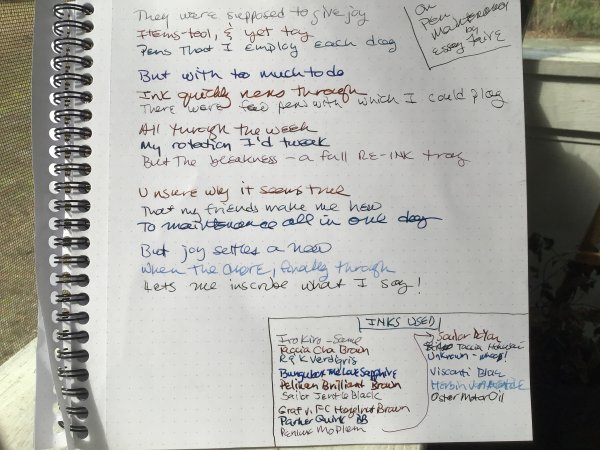 They were supposed to give joy
Items - tool, & yet toy
Pens That I employ each day
But with to much to do
Ink quickly runs through
There were few pens with which I could play
All through the week
My rotation I'd tweak
But The bleakness - a full RE-INK tray
Unsure why it seems true
That my friends make me hew
To maintenance all in one day
But joy settles a new
When the chore, finally through
Lets me inscribe what I say!
On
Pen
Maintenance
by
Essay Faire
INKS USED
Iroko
Taccia Cha Brown
R&K Verdigris
Bungubox The Last Sapphire
Pelikan Brilliant Brown
Sailor Jentle Black
Graf v. FC Hazelnut Brown
Parker Quink BB
Sailor
Taccia
Unknown - whoops!
Visconti Blue
Herbin
Oster Motor Oil